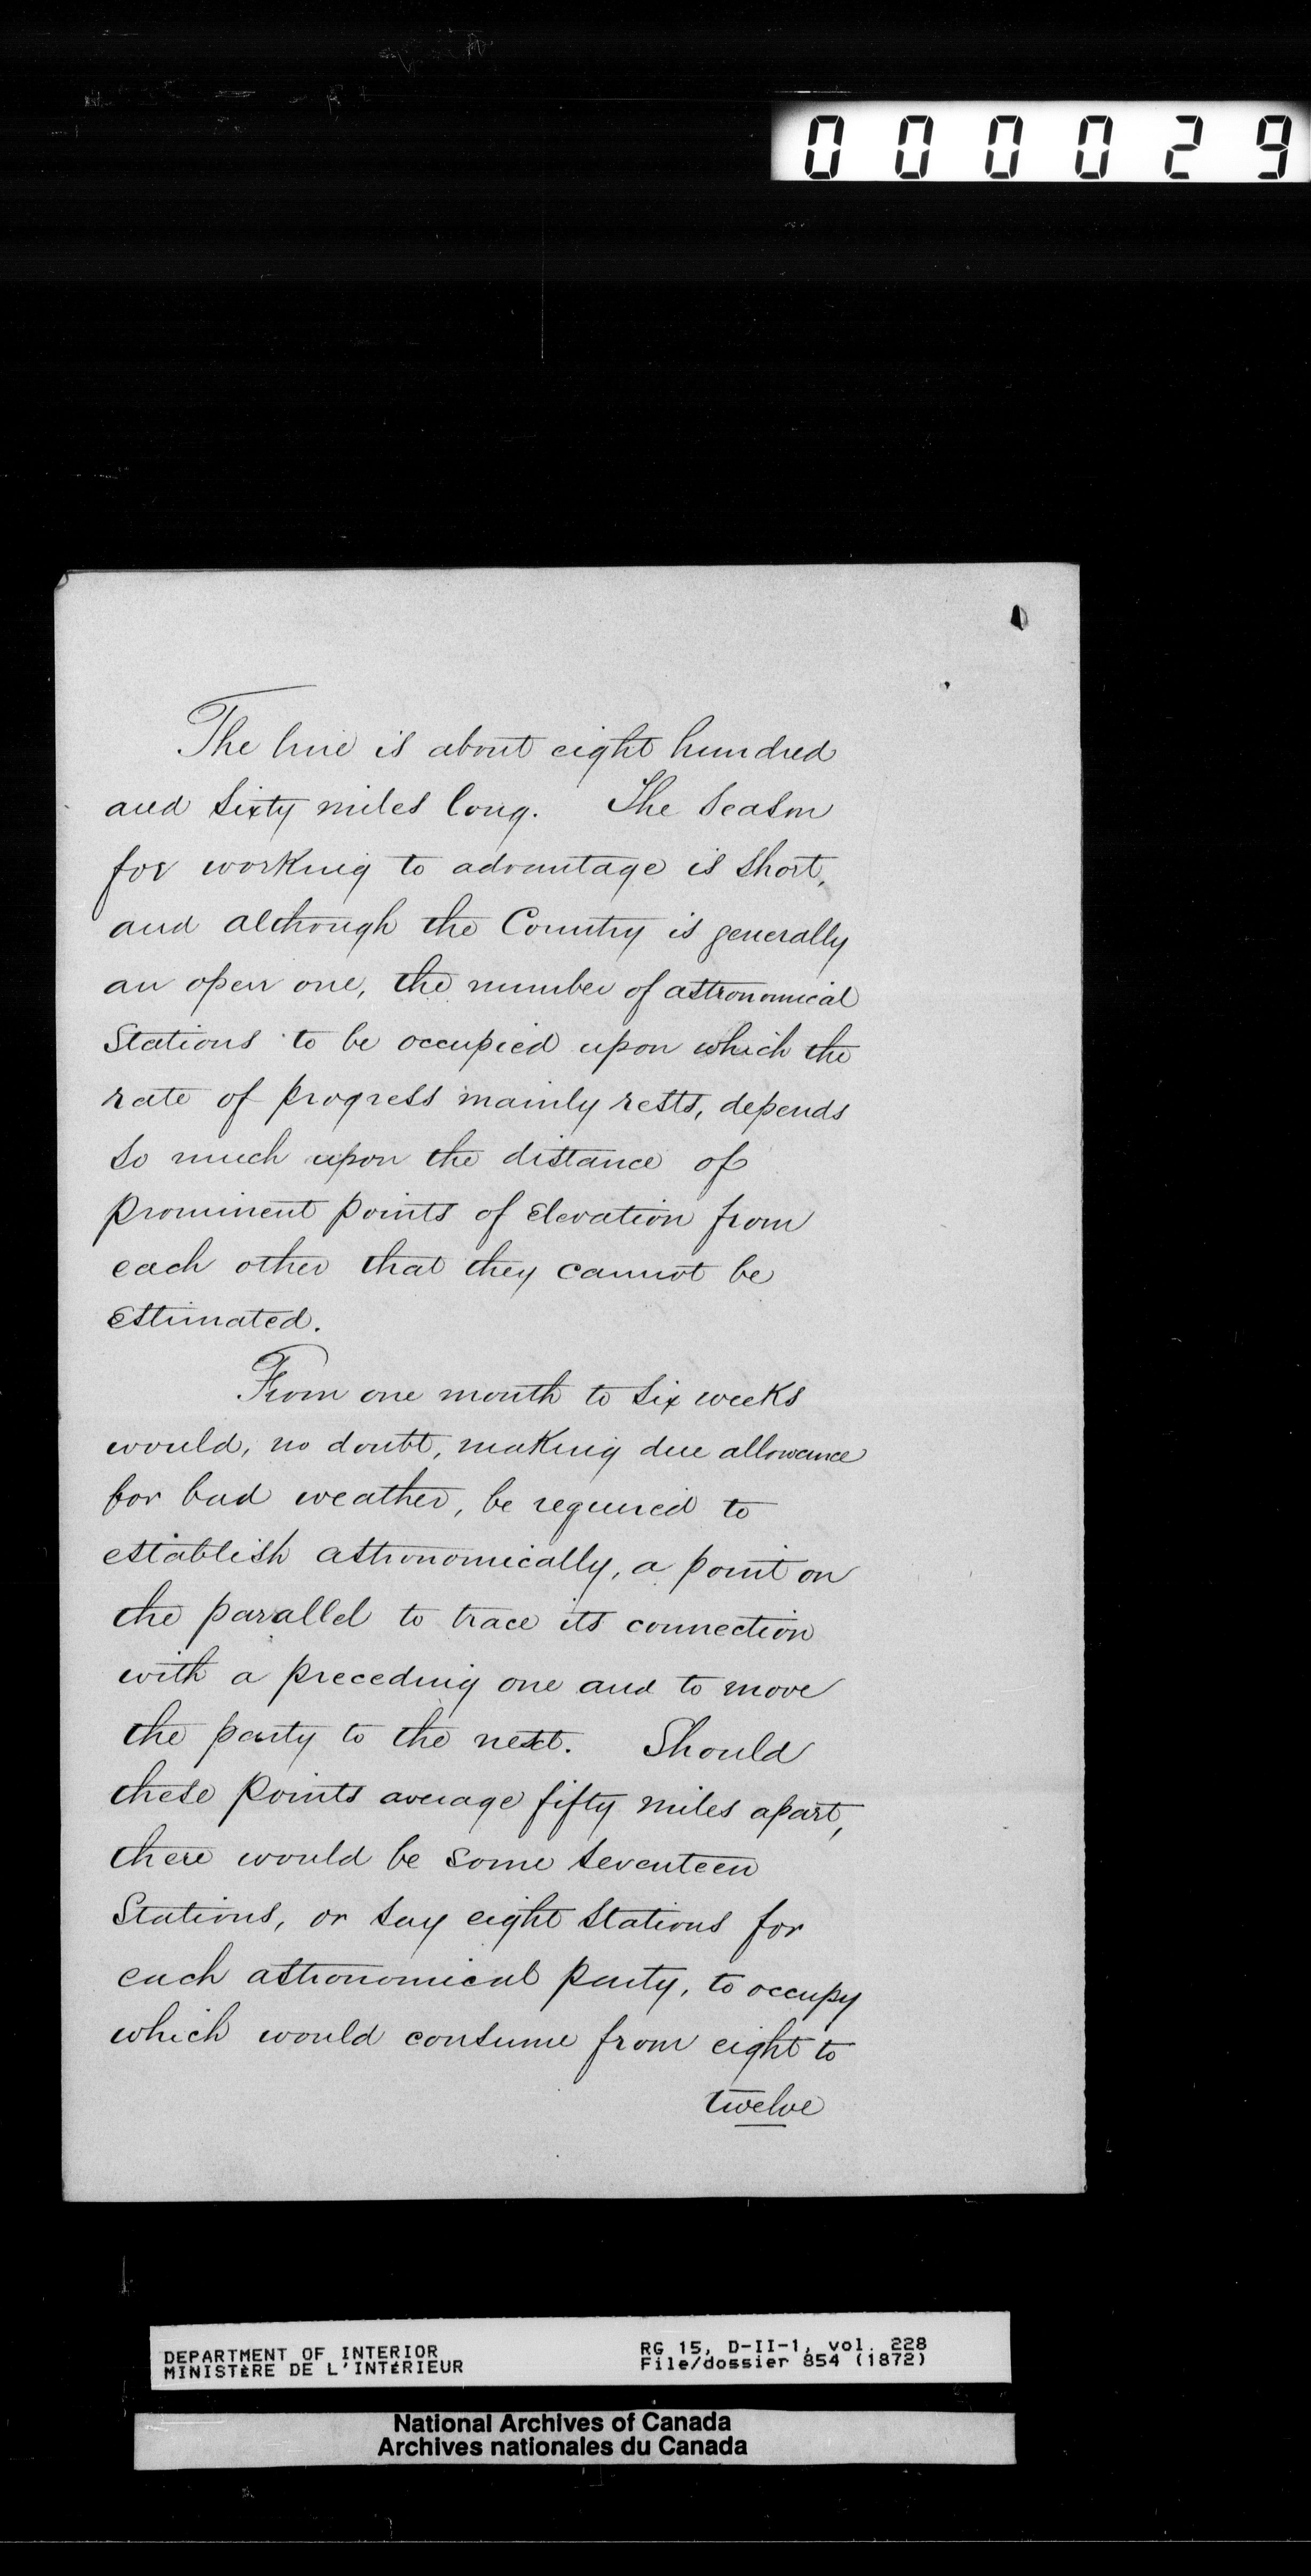 000029
The line is about eight hundred
and sixty miles long. The Season
for working to advantage is short,
and although the Country is generally
an open one, the number of astronomical
Stations to be occupied upon which the
rate of progress mainly rests, depends
so much upon the distance of
prominent points of elevation from
each other that they cannot be
estimated.
From one month to six weeks
would, no doubt, making due allowance
for bad weather, be required to
establish astronomically, a point on
the parallel to trace its connection
with a preceding one and to move
the party to the next. Should
these points average fifty miles apart,
there would be some seventeen
Stations, or say eight stations for
each astronomical party, to occupy
which would consume from eight to
twelve
DEPARTMENT OF INTERIOR
MINISTÈRE DE L'INTÉRIEUR
RG 15, D-II-1, vol. 228
File/dossier 854 (1872)
National Archives of Canada
Archives nationales du Canada